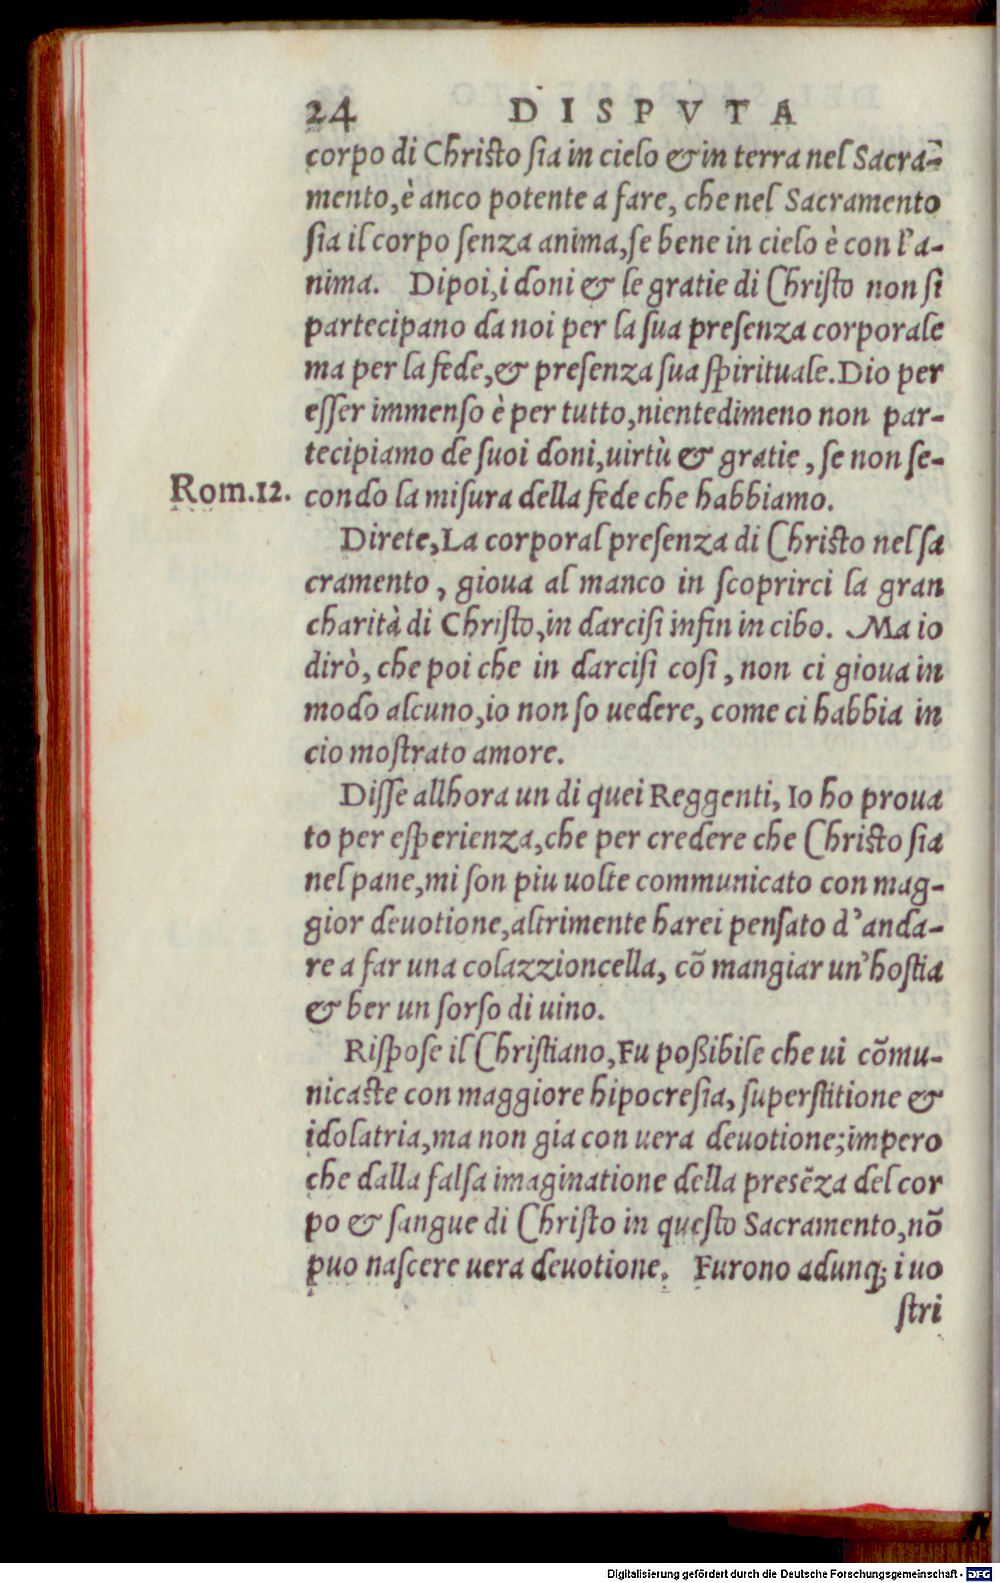 24 DISPVTA
corpo di Christo sia in cielo & in terra nel Sacra-
mento, è anco potente a fare, che nel Sacramento
sia il corpo senza anima, se bene in cielo è con l'a-
nima. Dipoi, i doni & le gratie di Christo non si
partecipano da noi per la sua presenza corporale
ma per la fede, & presenza sua spirituale. Dio per
esser immenso è per tutto, nientedimeno non par-
tecipiamo de suoi doni, uirtù & gratie, se non se-
Rom.12. condo la misura della fede che habbiamo.
Direte, La corporal presenza di Christo nel sa
cramento, gioua al manco in scoprirci la gran
charità di Christo, in darcisi infin in cibo. Ma io
dirò, che poi che in darcisi cosi, non ci gioua in
modo alcuno, io non so uedere, come ci habbia in
cio mostrato amore.
Disse allhora un di quei Reggenti, Io ho proua
to per esperienza, che per credere che Christo sia
nel pane, mi son piu uolte communicato con mag-
gior deuotione, altrimente harei pensato d'anda-
re a far una colazzioncella, cõ mangiar un'hostia
& ber un sorso di uino.
Rispose il Christiano, Fu poßibile che ui cõmu-
nicaste con maggiore hipocresia, superstitione &
idolatria, ma non gia con uera deuotione; impero
che dalla falsa imaginatione della presẽza del cor
po & sangue di Christo in questo Sacramento, nõ
puo nascere uera deuotione. Furono adunq; i uo
stri
Digitalisierung gefördert durch die Deutsche Forschungsgemeinschaft - DFG